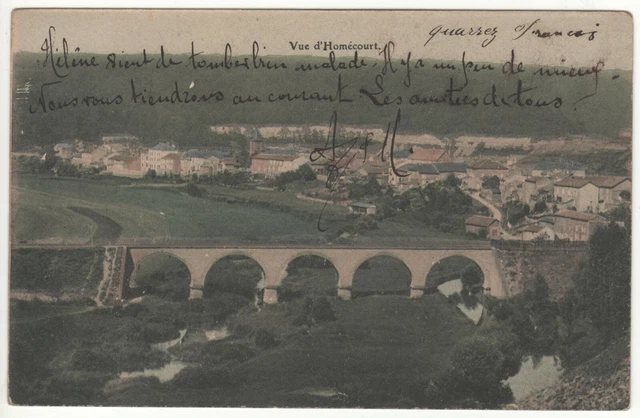 Vue d'Homécourt.
Hélène vient de tomber bien malade. Il y a un peu de mieux.
Nous vous tiendrons au courant Les amitiés de tous